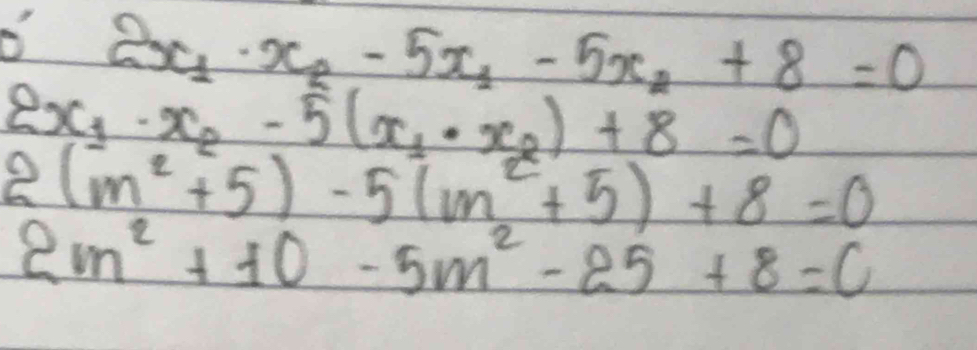 ó 2x₁ · x₂ - 5x₁ - 5x₂ + 8 = 0
2x₁ · x₂ - 5(x₁ · x₂) + 8 = 0
2(m² + 5) - 5(m² + 5) + 8 = 0
2m² + 10 - 5m² - 25 + 8 = 0